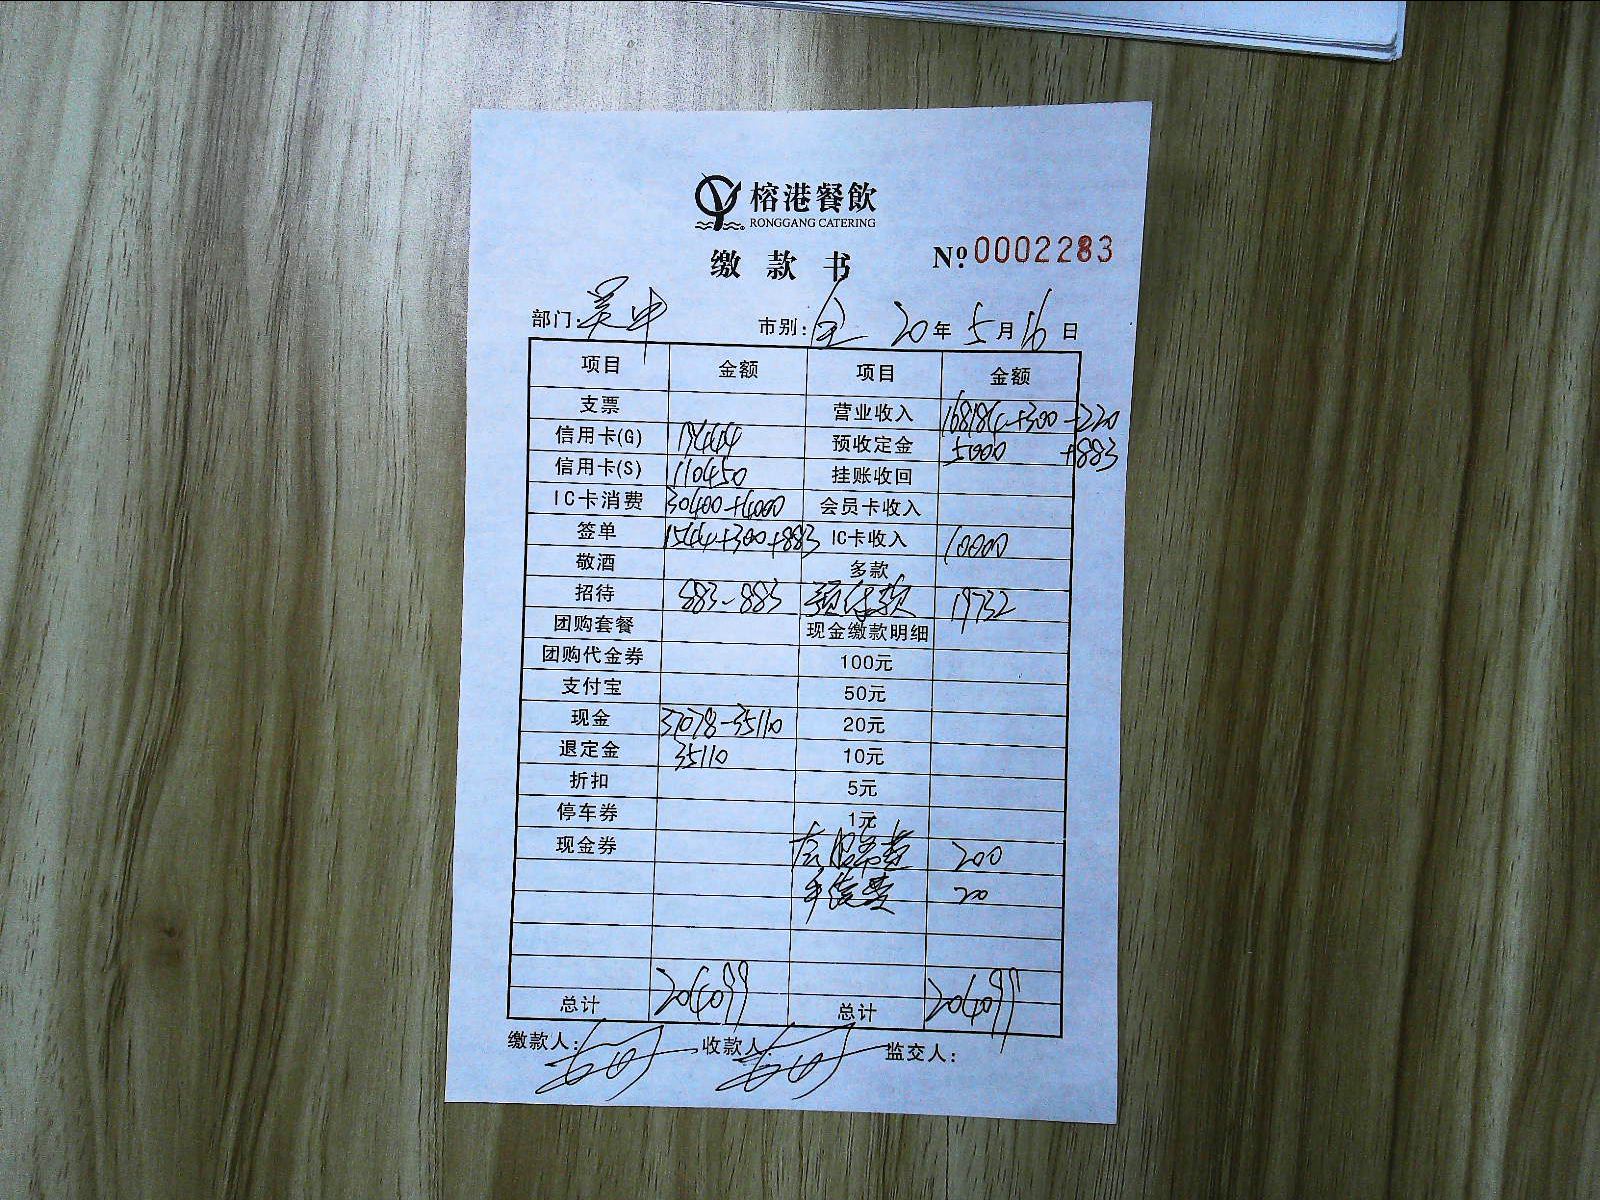 榕港餐飲
RONGGANG CATERING
缴款书 Nº 0002283
部门: 吴中 市别: 全 20年5月16日
项目 金额 项目 金额
支票 营业收入 168184+300-220
信用卡(G) 19444 预收定金 5000 +883
信用卡(S) 110450 挂账收回
IC卡消费 30400+4000 会员卡收入
签单 1544+300+883 IC卡收入 10000
敬酒 多款
招待 883-883 19732
团购套餐 现金缴款明细
团购代金券 100元
支付宝 50元
现金 37078-35110 20元
退定金 35110 10元
折扣 5元
停车券 1元
现金券 200
手续费 20
总计 204099 总计 204099
缴款人: 收款人: 监交人: